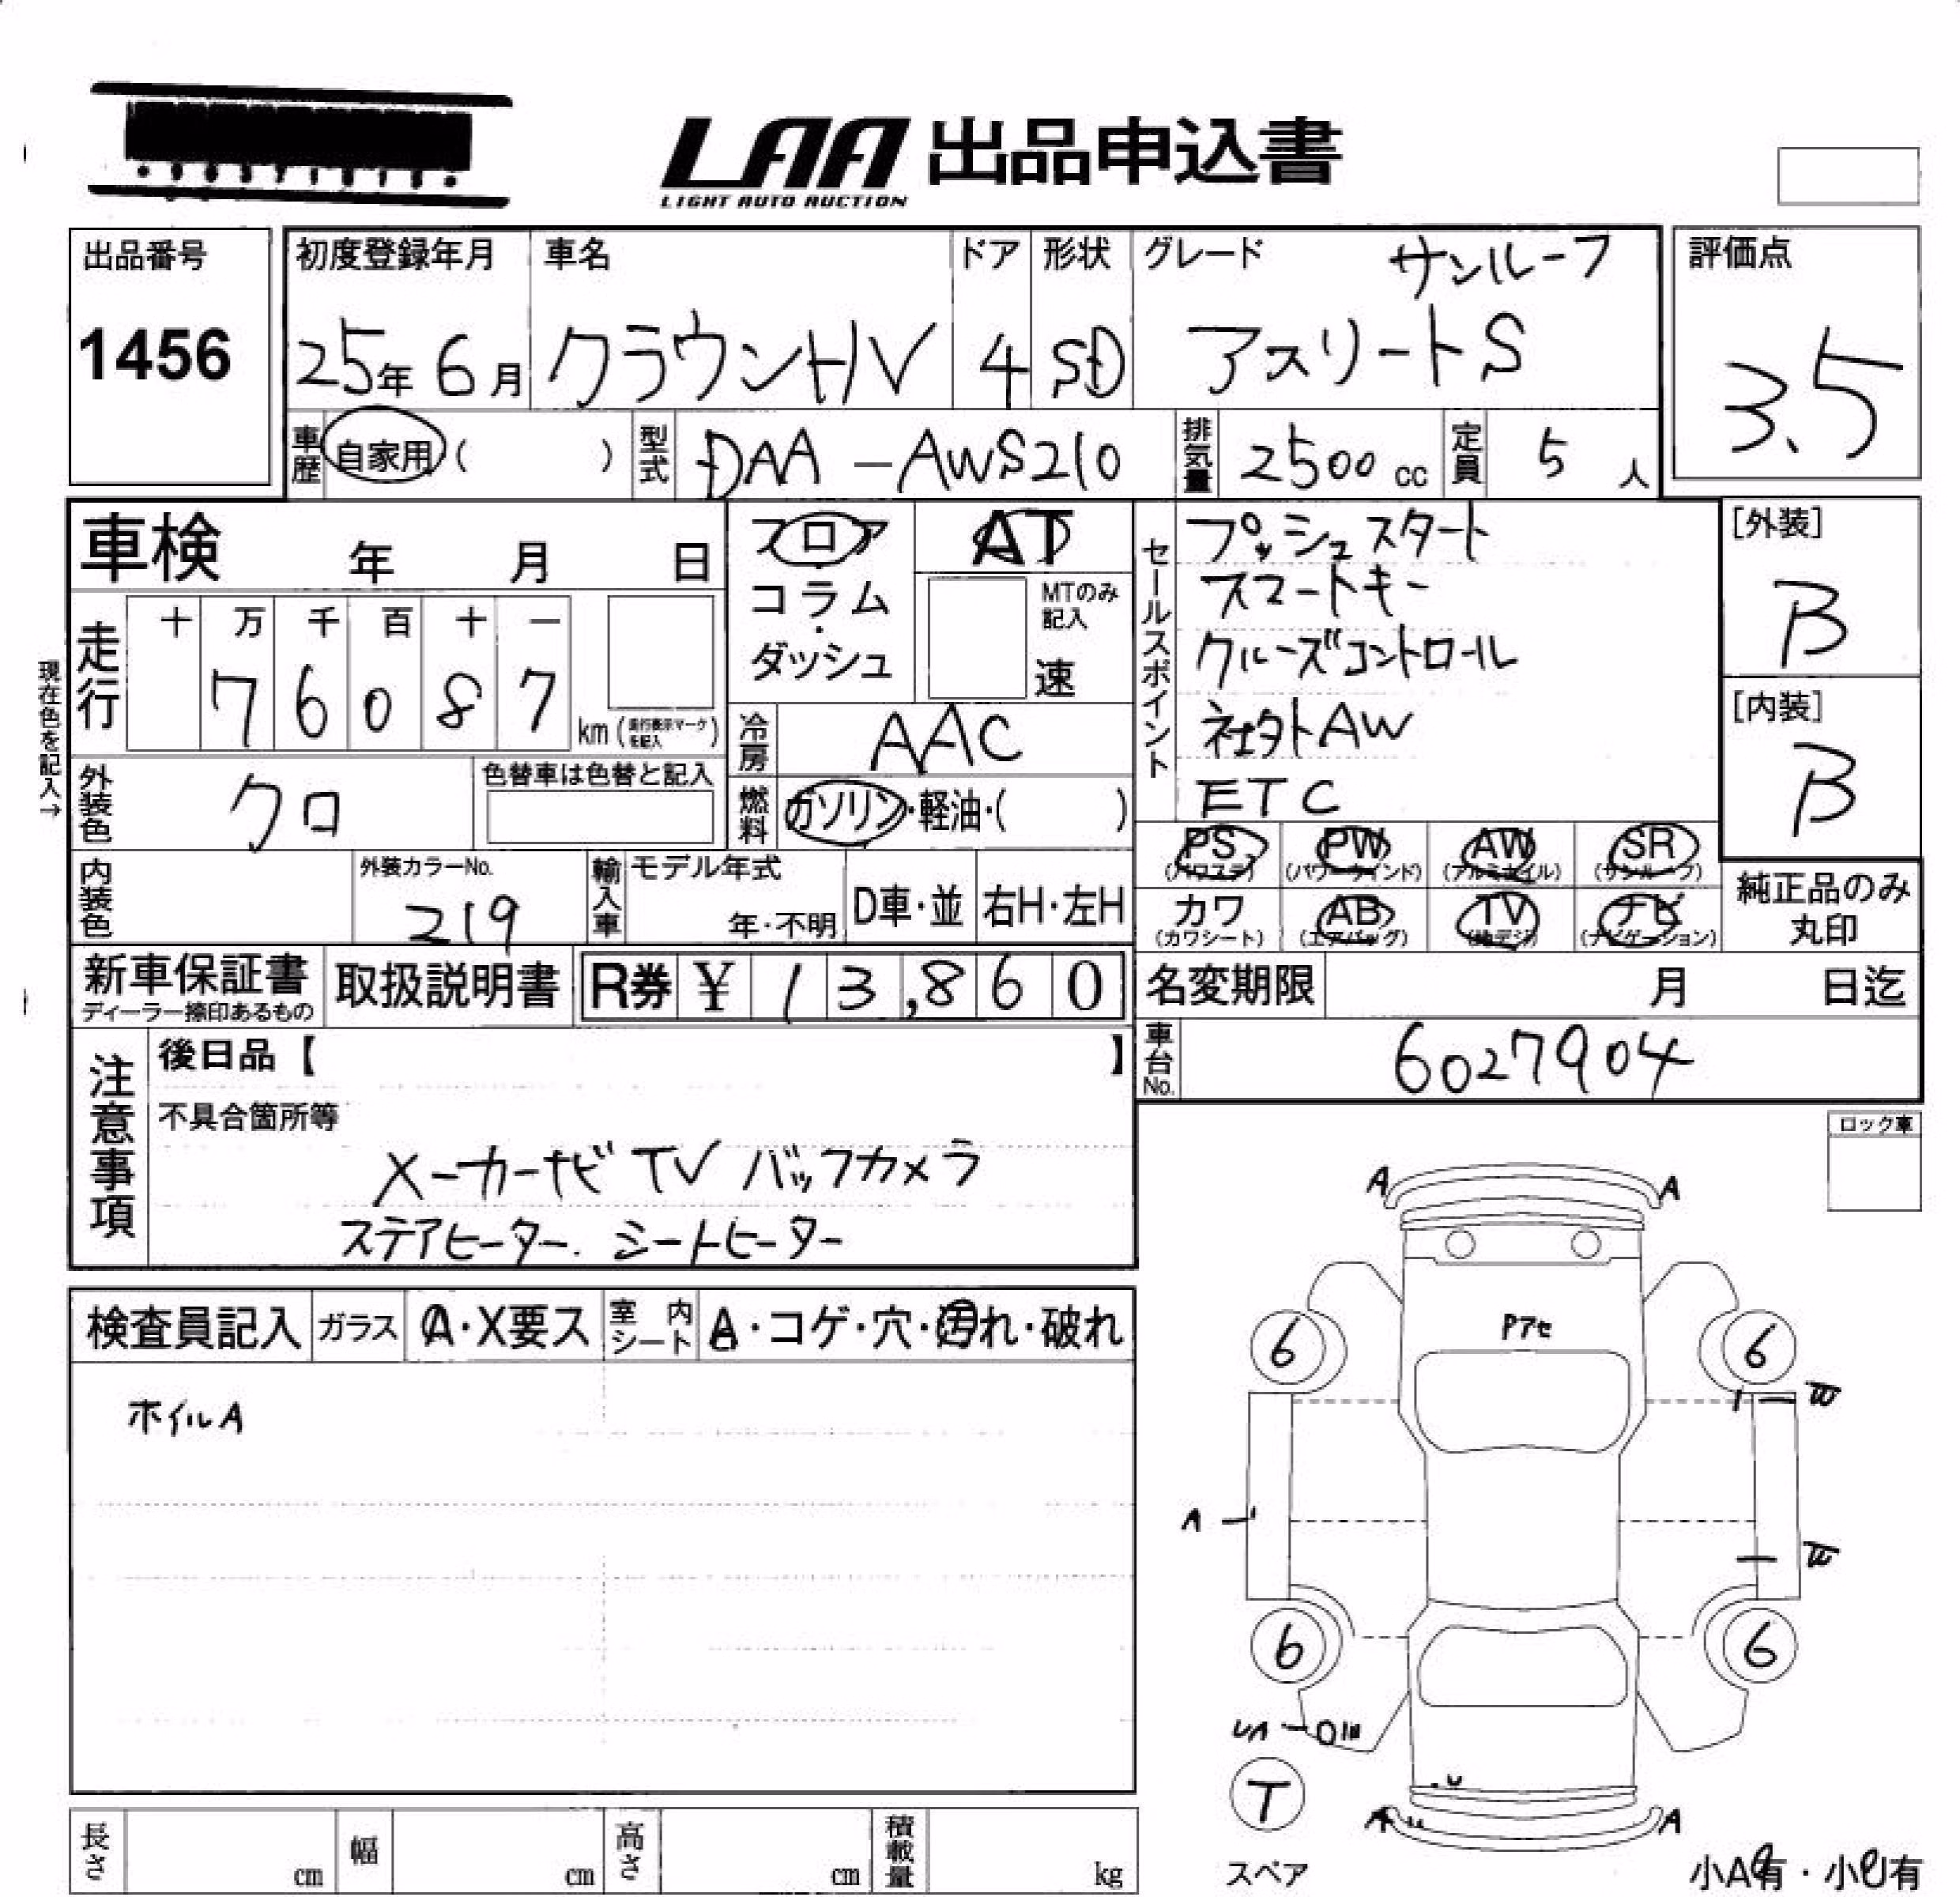 LAA 出品申込書
LIGHT AUTO AUCTION
出品番号
1456
初度登録年月
25年 6月
車名
クラウンHV
ドア
4
形状
SD
グレード
サンルーフ
アスリートS
評価点
3.5
車歴 自家用 ( )
型式 DAA-AWS210
排気量 2500 cc
定員 5 人
車検 年 月 日
走行
十 万 千 百 十 一
7 6 0 8 7
km (走行表示マークを記入)
現在色を記入→
外装色 クロ
色替車は色替と記入
フロア
コラム
・
ダッシュ
AT
MTのみ記入
速
冷房 AAC
燃料 ガソリン・軽油・( )
セールスポイント
プッシュスタート
スマートキー
クルーズコントロール
社外AW
ETC
[外装]
B
[内装]
B
内装色
外装カラーNo.
219
輸入車
モデル年式
年・不明
D車・並
右H・左H
PS (パワステ)
PW (パワーウインド)
AW (アルミホイル)
SR (サンルーフ)
カワ (カワシート)
AB (エアバッグ)
TV (地デジ)
ナビ (ナビゲーション)
純正品のみ
丸印
新車保証書
ディーラー捺印あるもの
取扱説明書
R券 ¥ 13,860
名変期限 月 日迄
車台No. 6027904
注意事項
後日品【 】
不具合箇所等
メーカーナビ TV バックカメラ
ステアヒーター. シートヒーター
ロック車
検査員記入
ガラス A・X要ス
室内シート A・コゲ・穴・汚れ・破れ
ホイルA
A A
Pアセ
6 6
W
A
W
6 6
T
スペア
U
A A
小A有・小U有
長さ cm
幅 cm
高さ cm
積載量 kg